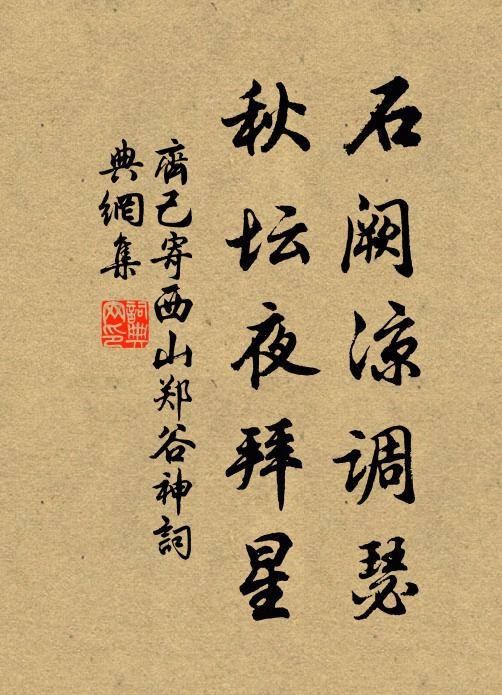 石阙凉调瑟
秋坛夜拜星
齊己寄西山郑谷神詞
典網集
詞典网印